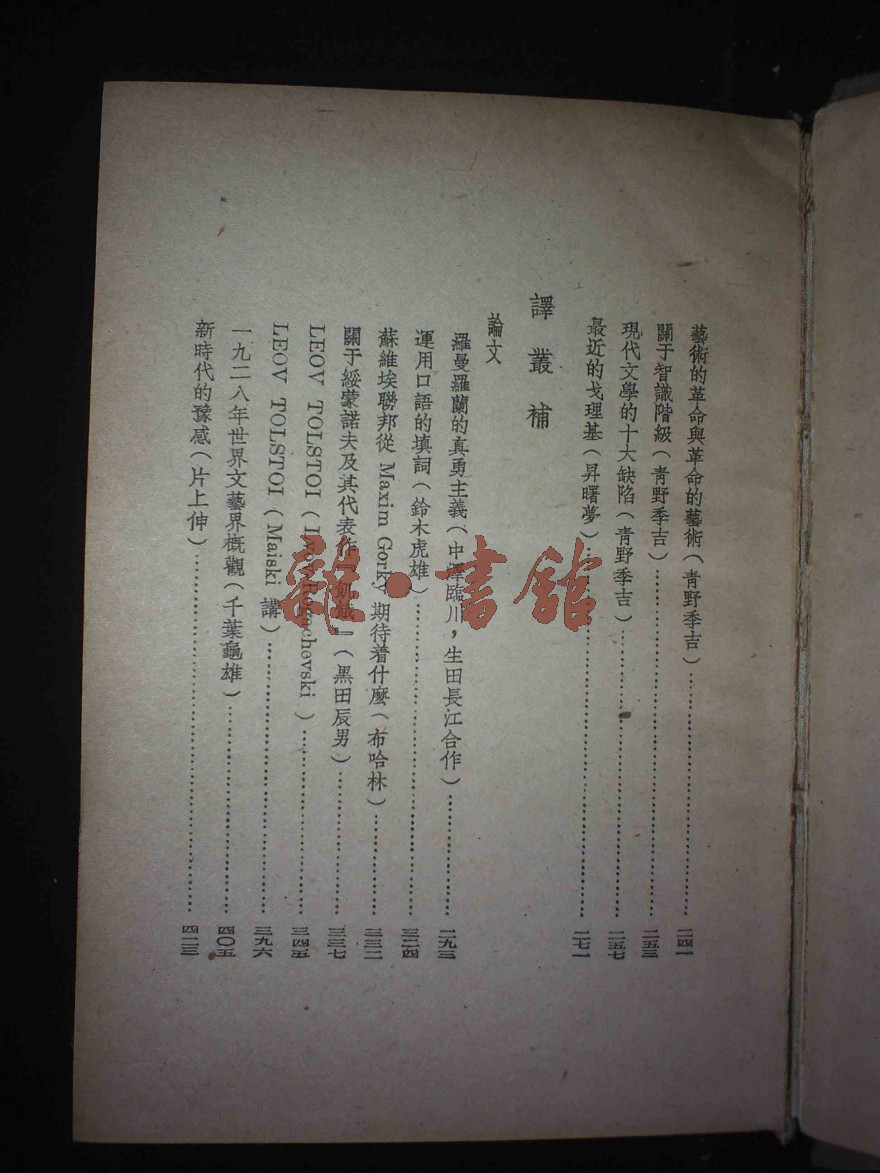 藝術的革命與革命的藝術(青野季吉)……二四一
關于智識階級(青野季吉)……二五三
現代文學的十大缺陷(青野季吉)……二五七
最近的戈理基(昇曙夢)……二七一
譯叢補
論文
羅曼羅蘭的真勇主義(中澤臨川,生田長江合作)……二九三
運用口語的填詞(鈴木虎雄)……三二四
蘇維埃聯邦從 Maxim Gorky 期待着什麼(布哈林)……三三二
關于綏蒙諾夫及其代表作『飢餓』(黑田辰男)……三三七
LEOV TOLSTOI(Lvov-Rogachevski)……三四五
LEOV TOLSTOI(Maiski 講)……三九六
一九二八年世界文藝界概觀(千葉龜雄)……四〇五
新時代的豫感(片上伸)……四二三
龍·書館